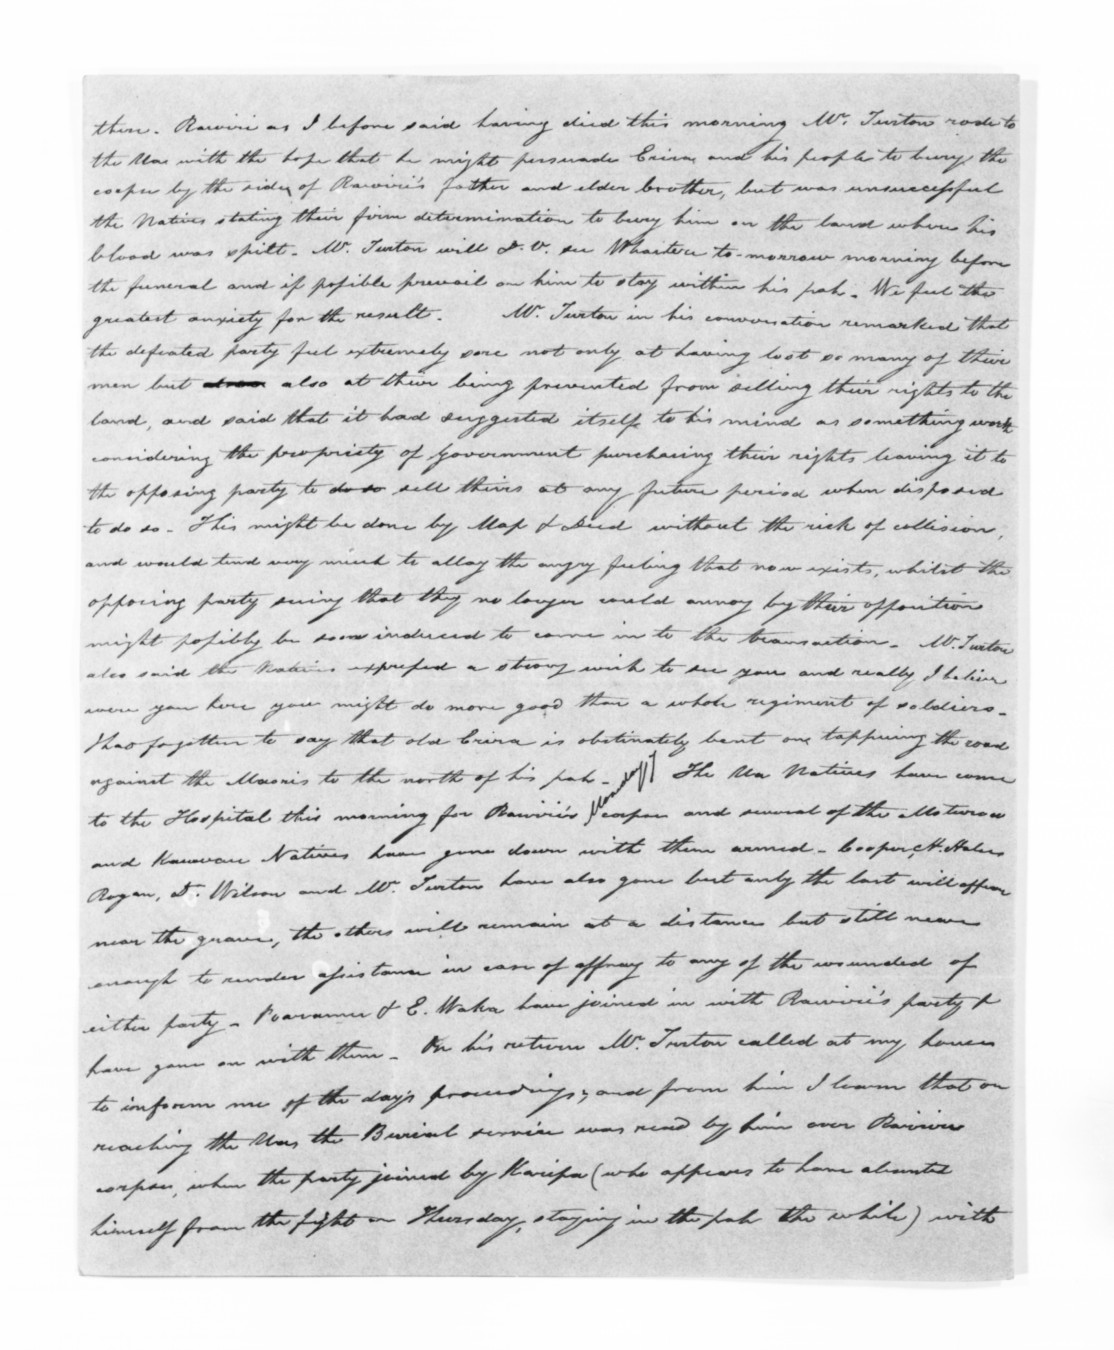 then. Rawiri as I before said having died this morning Mr. Turton rode to
the Ua with the hope that he might persuade Erira and his people to bury the
corpse by the side of Rawiri's father and elder brother, but was unsuccessful
the Natives stating their firm determination to bury him on the land where his
blood was spilt. Mr. Turton will D.V. see Whaitere to-morrow morning before
the funeral and if possible prevail on him to stay within his pah. We feel the
greatest anxiety for the result. Mr. Turton in his conversation remarked that
the defeated party feel extremely sore not only at having lost so many of their
men but also at their being prevented from selling their rights to the
land, and said that it had suggested itself to his mind as something worth
considering the propriety of Government purchasing their rights leaving it to
the opposing party to do so sell theirs at any future period when disposed
to do so. This might be done by Map & Deed without the risk of collision,
and would tend very much to allay the angry feeling that now exists, whilst the
opposing party seeing that they no longer could annoy by their opposition
might possibly be soon induced to come in to the transaction. Mr. Turton
also said the Natives expressed a strong wish to see you and really I believe
were you here you might do more good than a whole regiment of soldiers.
I had forgotten to say that old Erira is obstinately bent on tappuing the road
against the Maoris to the north of his pah. Monday The Ua Natives have come
to the Hospital this morning for Rawiri's corpse and several of the Moturoa
and Kawau Natives have gone down with them armed. Cooper, H. Halse
Rogan, Dr. Wilson and Mr. Turton have also gone but only the last will appear
near the grave, the others will remain at a distance but still near
enough to render assistance in case of affray to any of the wounded of
either party. Poharama & E. Waka have joined in with Rawiri's party &
have gone on with them. On his return Mr. Turton called at my house
to inform me of the day's proceedings, and from him I learn that on
reaching the Ua the Burial service was read by him over Rawiri's
corpse, when the party joined by Karipa (who appears to have absented
himself from the fight on Thursday, staying in the pah the while) with